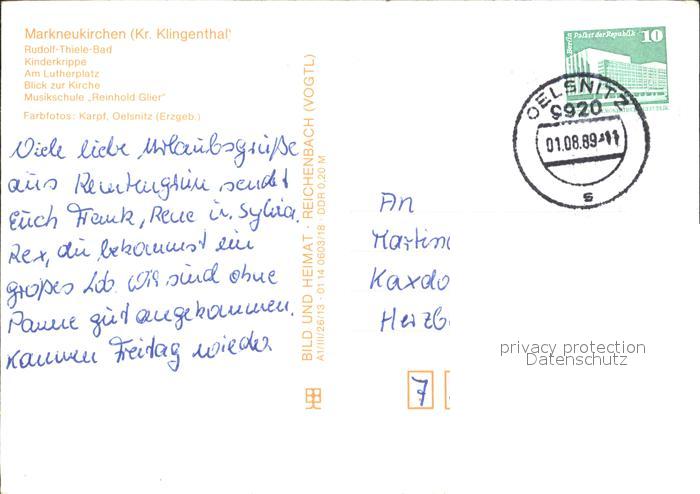 Markneukirchen (Kr. Klingenthal)
Rudolf-Thiele-Bad
Kinderkrippe
Am Lutherplatz
Blick zur Kirche
Musikschule „Reinhold Glier"
Farbfotos: Karpf, Oelsnitz (Erzgeb.)
Viele liebe Urlaubsgrüße
aus sendet
Euch Frank, Rene u. Sylvia.
Rex, du bekommst ein
großes Lob. Wir sind ohne
Panne gut angekommen.
Kommen Freitag wieder
BILD UND HEIMAT · REICHENBACH (VOGTL)
A1/III/26/13 · 01 14 0603/18 · DDR 0,20 M
Berlin Palast der Republik 10
OELSNITZ
9920
01.08.89-11
s
An
Martin
Kaxdo
Herzb
7
privacy protection
Datenschutz